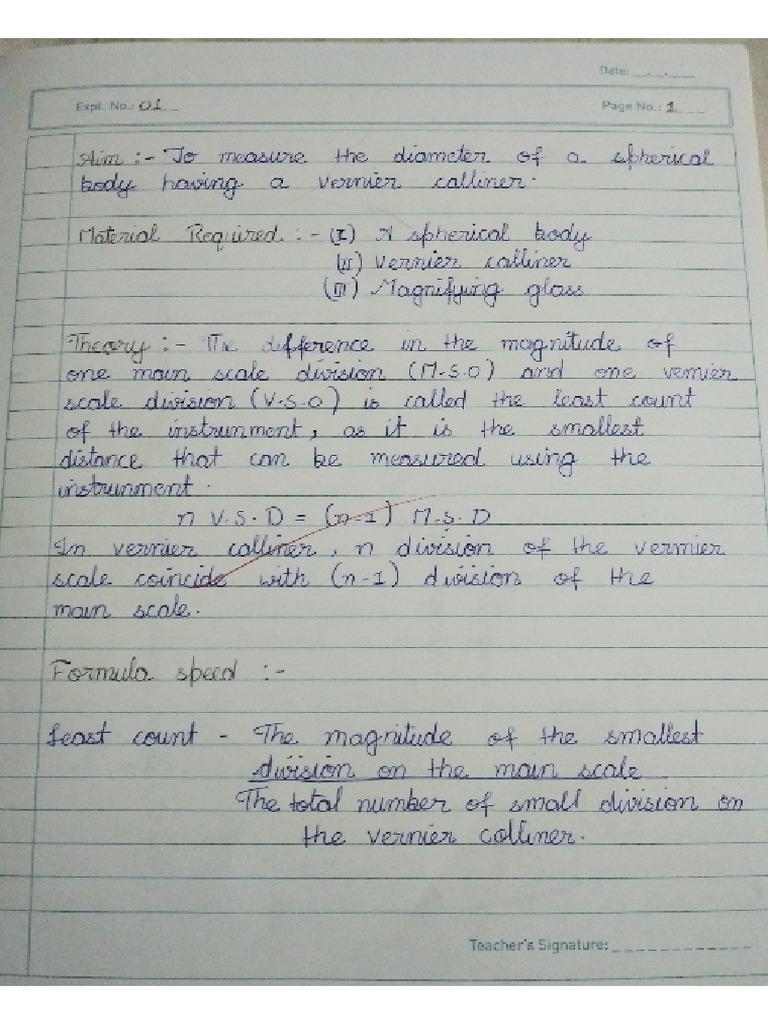 Date: _._.___
Expt. No.: 01
Page No.: 1
Aim :- To measure the diameter of a spherical
body having a vernier calliner.
Material Required :- (I) A spherical body
(II) Vernier calliner
(III) Magnifying glass
Theory :- The difference in the magnitude of
one main scale division (M.S.O) and one vernier
scale division (V.S.O) is called the least count
of the instrunment, as it is the smallest
distance that can be measured using the
instrunment.
n V.S.D = (n-1) M.S.D
In vernier calliner, n division of the vermier
scale coincide with (n-1) division of the
main scale.
Formula speed :-
Least count - The magnitude of the smallest
division on the main scale
The total number of small division on
the vernier colliner.
Teacher's Signature: _____________